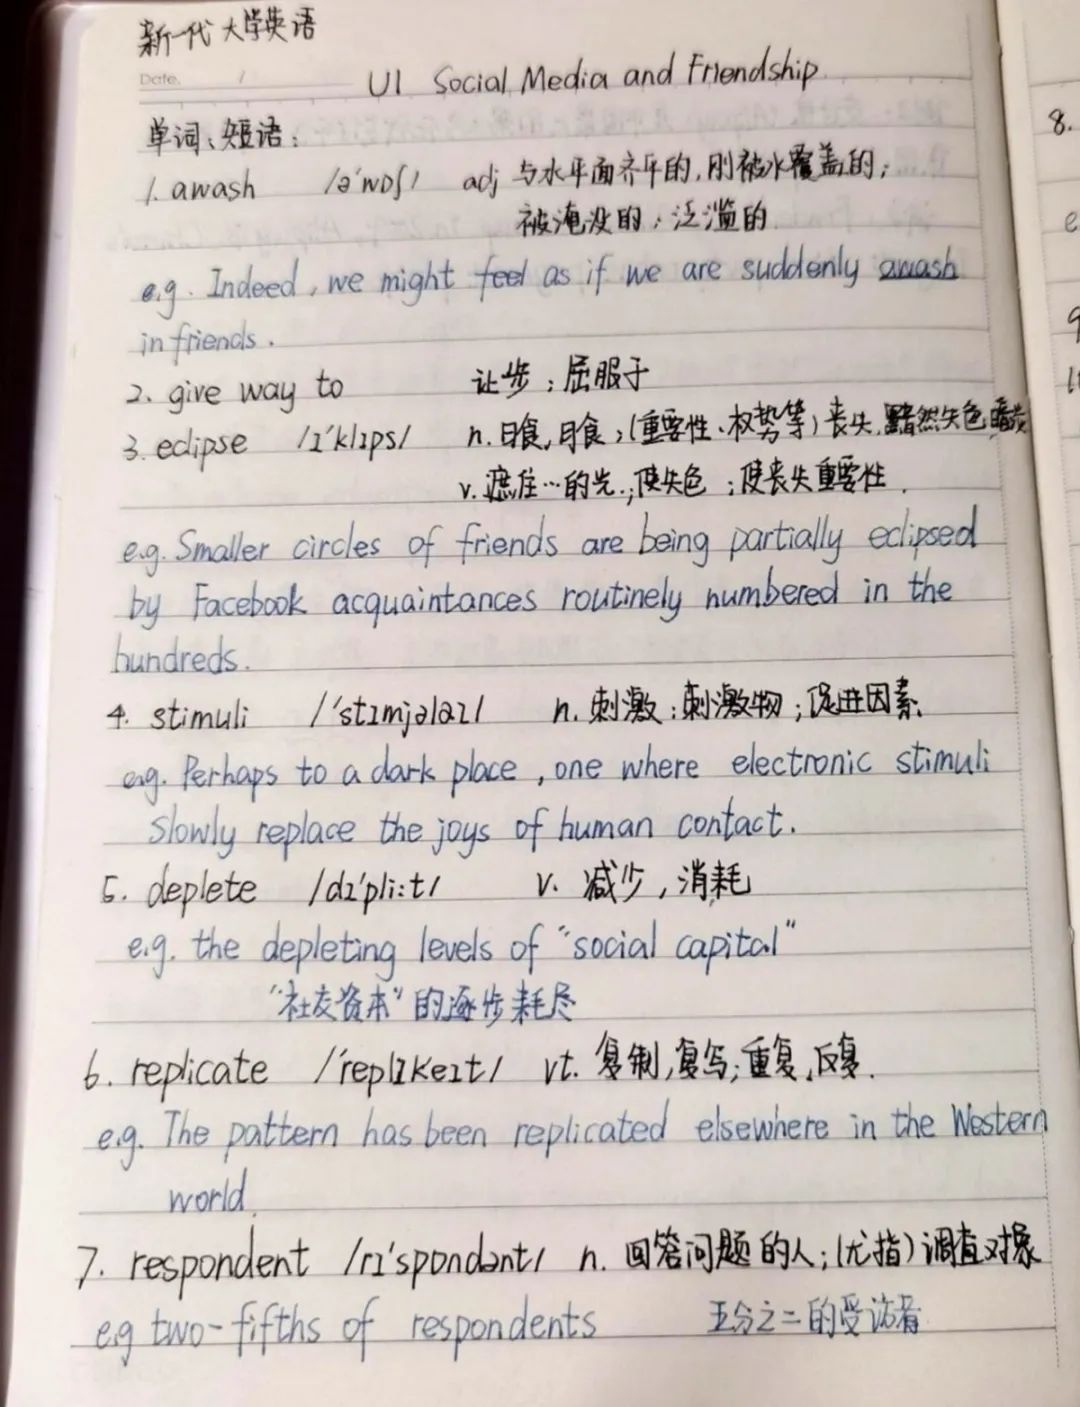 新一代大学英语
Date. /
U1 Social Media and Friendship
单词、短语:
1. awash /ə'wɒʃ/ adj 与水平面齐平的,刚被水覆盖的;
被淹没的;泛滥的
e.g. Indeed, we might feel as if we are suddenly awash
in friends.
2. give way to 让步;屈服于
3. eclipse /ɪ'klɪps/ n. 日食,月食;(重要性、权势等)丧失,黯然失色,暗淡
v. 遮住…的光;使失色;使丧失重要性.
e.g. Smaller circles of friends are being partially eclipsed
by Facebook acquaintances routinely numbered in the
hundreds.
4. stimuli /'stɪmjəlaɪ/ n. 刺激;刺激物;促进因素.
e.g. Perhaps to a dark place, one where electronic stimuli
slowly replace the joys of human contact.
5. deplete /dɪ'pli:t/ v. 减少,消耗
e.g. the depleting levels of "social capital"
"社友资本"的逐步耗尽
6. replicate /'replɪkeɪt/ vt. 复制,复写;重复,反复.
e.g. The pattern has been replicated elsewhere in the Western
world.
7. respondent /rɪ'spɒndənt/ n. 回答问题的人;(尤指)调查对象
e.g two-fifths of respondents 五分之二的受访者
8.
e
9